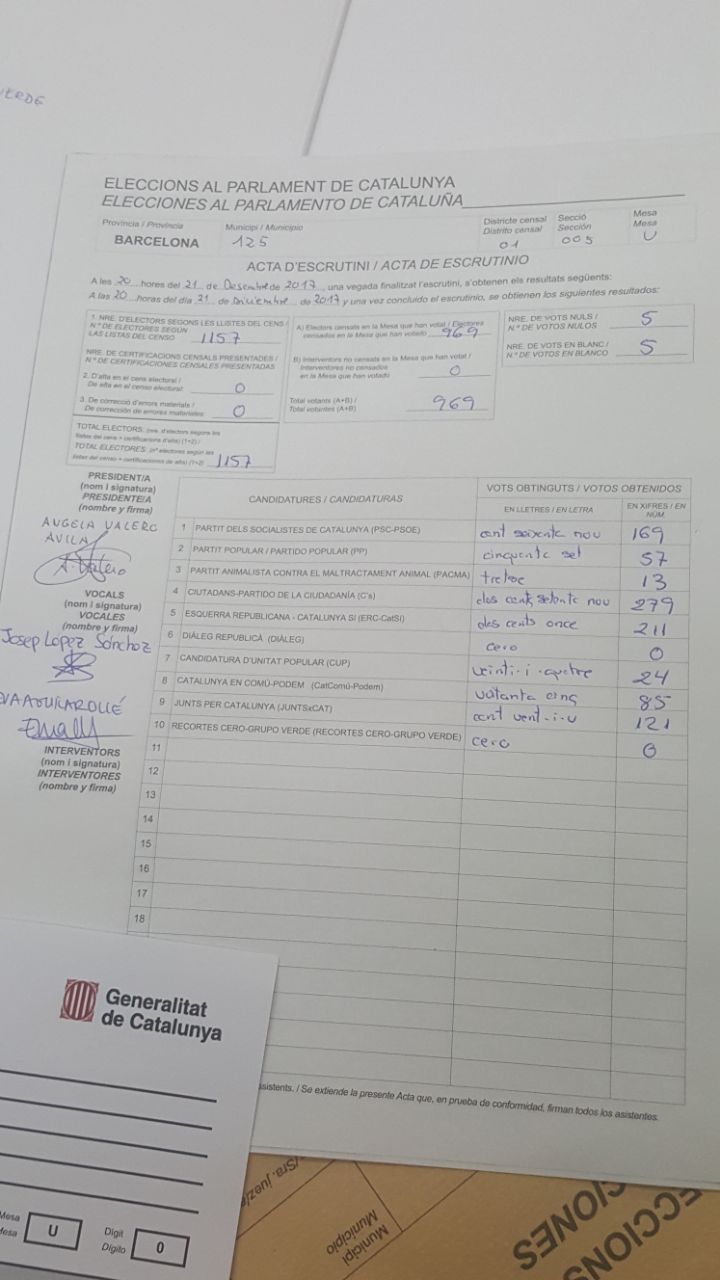 ELECCIONS AL PARLAMENT DE CATALUNYA
ELECCIONES AL PARLAMENTO DE CATALUÑA
Província / Provincia
BARCELONA
Municipi / Municipio
125
Districte censal
Distrito censal
01
Secció
Sección
005
Mesa
Mesa
U
ACTA D'ESCRUTINI / ACTA DE ESCRUTINIO
A les 20 hores del 21 de Desembre de 2017, una vegada finalitzat l'escrutini, s'obtenen els resultats següents:
A las 20 horas del día 21 de Diciembre de 2017 y una vez concluido el escrutinio, se obtienen los siguientes resultados:
1. NRE. D'ELECTORS SEGONS LES LLISTES DEL CENS /
N.º DE ELECTORES SEGÚN
LAS LISTAS DEL CENSO 1157
NRE. DE CERTIFICACIONS CENSALS PRESENTADES /
N.º DE CERTIFICACIONES CENSALES PRESENTADAS
2. D'alta en el cens electoral /
De alta en el censo electoral: 0
3. De correcció d'errors materials /
De corrección de errores materiales: 0
TOTAL ELECTORS: (nre. d'electors segons les
llistes del cens + certificacions d'alta) (1+2) /
TOTAL ELECTORES: (nº electores según las
listas del censo + certificaciones de alta) (1+2) 1157
A) Electors censats en la Mesa que han votat / Electores
censados en la Mesa que han votado 969
B) Interventors no censats en la Mesa que han votat /
Interventores no censados
en la Mesa que han votado 0
Total votants (A+B) /
Total votantes (A+B) 969
NRE. DE VOTS NULS /
N.º DE VOTOS NULOS 5
NRE. DE VOTS EN BLANC /
N.º DE VOTOS EN BLANCO 5
PRESIDENT/A
(nom i signatura)
PRESIDENTE/A
(nombre y firma)
ANGELA VALERO
AVILA
A. Valero
VOCALS
(nom i signatura)
VOCALES
(nombre y firma)
Josep Lopez Sánchez
EVA AGUILAR OLLÉ
INTERVENTORS
(nom i signatura)
INTERVENTORES
(nombre y firma)
CANDIDATURES / CANDIDATURAS
VOTS OBTINGUTS / VOTOS OBTENIDOS
EN LLETRES / EN LETRA
EN XIFRES / EN NÚM.
1 PARTIT DELS SOCIALISTES DE CATALUNYA (PSC-PSOE) cent seixanta nou 169
2 PARTIT POPULAR / PARTIDO POPULAR (PP) cinquanta set 57
3 PARTIT ANIMALISTA CONTRA EL MALTRACTAMENT ANIMAL (PACMA) tretze 13
4 CIUTADANS-PARTIDO DE LA CIUDADANÍA (C's) dos cents setanta nou 279
5 ESQUERRA REPUBLICANA - CATALUNYA SÍ (ERC-CatSí) dos cents once 211
6 DIÀLEG REPUBLICÀ (DIÀLEG) cero 0
7 CANDIDATURA D'UNITAT POPULAR (CUP) veinti-i-quatre 24
8 CATALUNYA EN COMÚ-PODEM (CatComú-Podem) vuitanta cinq 85
9 JUNTS PER CATALUNYA (JUNTSxCAT) cent vent-i-u 121
10 RECORTES CERO-GRUPO VERDE (RECORTES CERO-GRUPO VERDE) cero 0
11
12
13
14
15
16
17
18
assistents. / Se extiende la presente Acta que, en prueba de conformidad, firman todos los asistentes.
Generalitat
de Catalunya
Mesa
Mesa
U
Dígit
Dígito
0
/Sra. juez
Municipi
Municipio
ECCIONS
CIONES